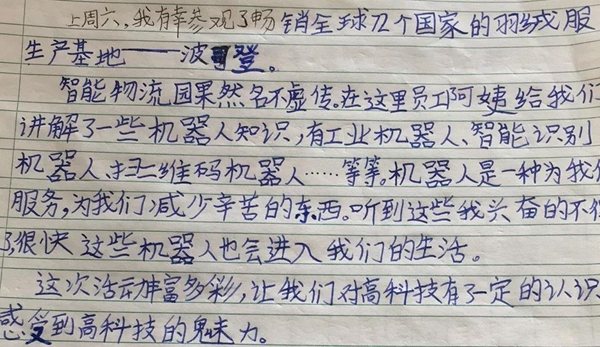 上周六，我有幸参观了畅销全球72个国家的羽绒服
生产基地——波司登。
智能物流园果然名不虚传。在这里员工阿姨给我们
讲解了一些机器人知识，有工业机器人、智能识别
机器人、扫二维码机器人……等等。机器人是一种为我们
服务，为我们减少辛苦的东西。听到这些我兴奋的不
了很快这些机器人也会进入我们的生活。
这次活动丰富多彩，让我们对高科技有了一定的认识
感受到高科技的魅力。